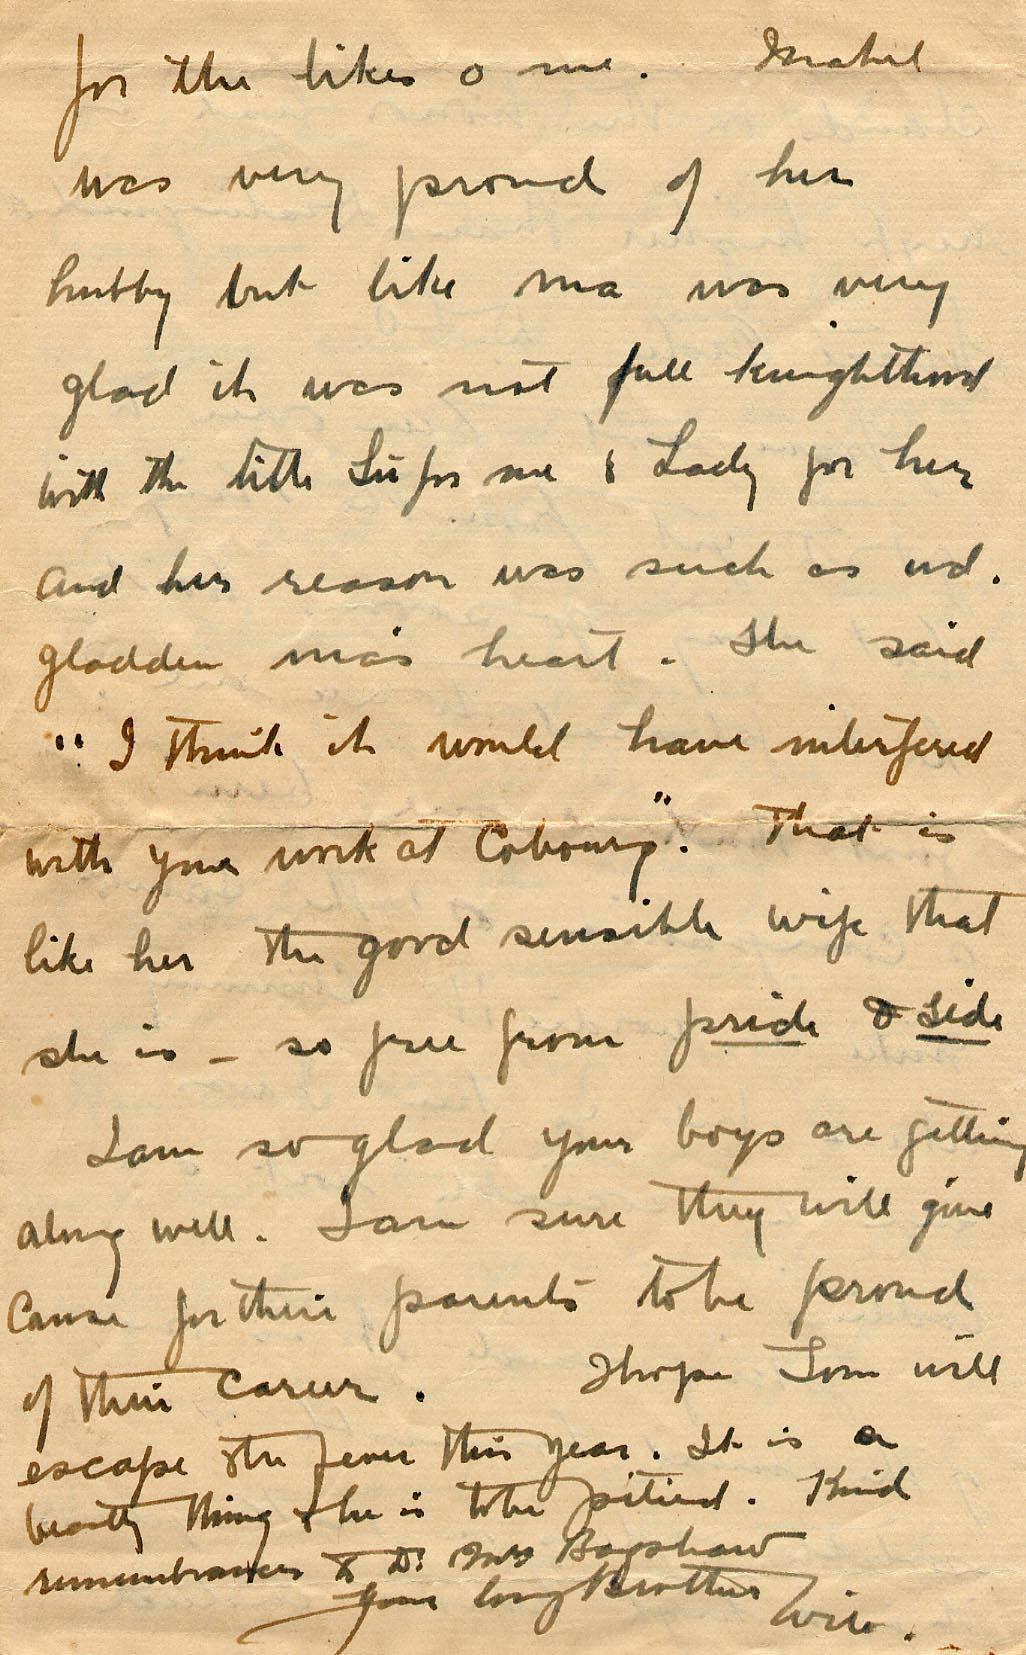 for the likes o me. Mabel
was very proud of her
hubby but like ma was very
glad it was not full knighthood
with the title Sir for me & Lady for her
and her reason was such as wd.
gladden ma's heart. She said
"I think it would have interfered
with your work at Cobourg". That is
like her the good sensible wife that
she is – so free from pride & side
I am so glad your boys are getting
along well. I am sure they will give
cause for their parents to be proud
of their career. I hope Tom will
escape the fever this year. It is a
beastly thing & he is to be pitied. Kind
remembrances to Dr Bagshaw
Your Brother Will.